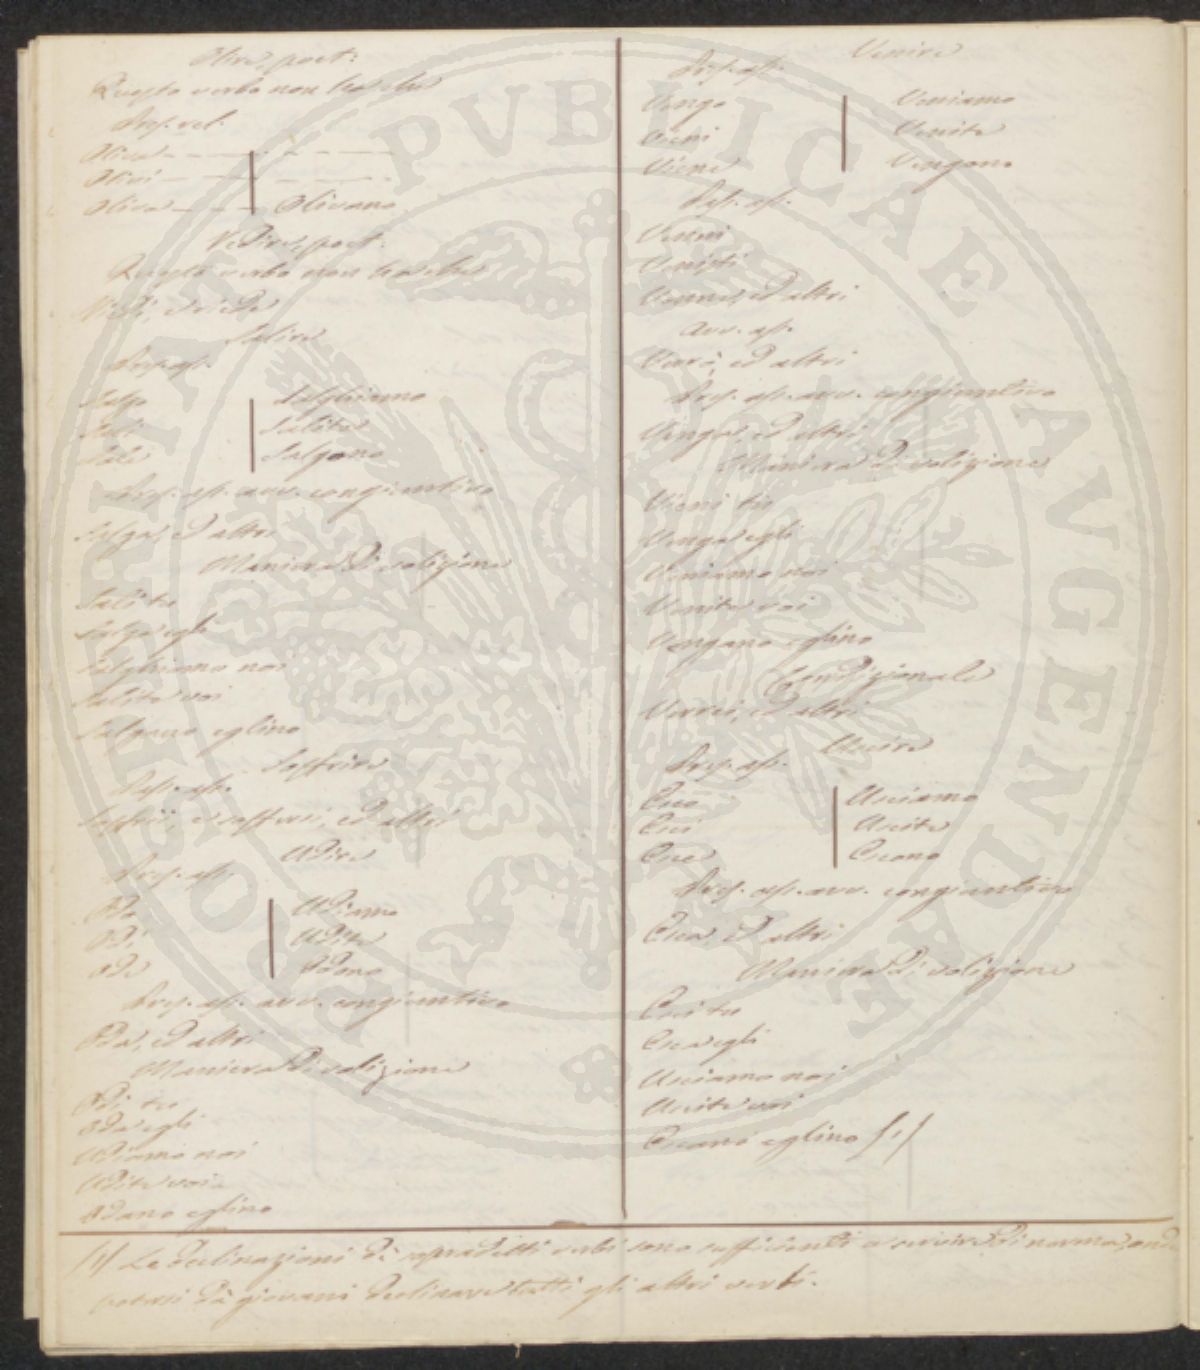 Olire, poet:
Questo verbo non ha che
Pres. rel.
Oliva
Olivi
Oliva Olivano
Redire, poet:
Questo verbo non ha che
Riedi, e riede
Salire
Pres. as.
Salgo Salghiamo
Sali Salite
Sale Salgono
Pres. as. avv. congiuntivo
Salga, ed altri
Maniera di volizione
Sali tu
Salga egli
Salghiamo noi
Salite voi
Salgano eglino
Soffrire
Pas. as.
Soffrii, e soffersi, ed altri
Udire
Pres. as.
Odo Udiamo
Odi Udite
Ode Odono
Pres. as. avv. congiuntivo
Oda, ed altri
Maniera di volizione
Odi tu
Oda egli
Udiamo noi
Udite voi
Odano eglino
Venire
Pres. as.
Vengo Veniamo
Vieni Venite
Viene Vengono
Pas. as.
Venni
Venisti
Venne, ed altri
Avv. as.
Verrò, ed altri
Pres. as. avv. congiuntivo
Venga, ed altri
Maniera di volizione
Vieni tu
Venga egli
Veniamo noi
Venite voi
Vengano eglino
Condizionale
Verrei, ed altri
Uscire
Pres. as.
Esco Usciamo
Esci Uscite
Esce Escono
Pres. as. avv. congiuntivo
Esca, ed altri
Maniera di volizione
Esci tu
Esca egli
Usciamo noi
Uscite voi
Escano eglino (1)
(1) Le declinazioni di sopradetti verbi sono sufficienti a servire di norma, onde
potersi da giovani declinare tutti gli altri verbi.
PVBLICAE AVGENDAE